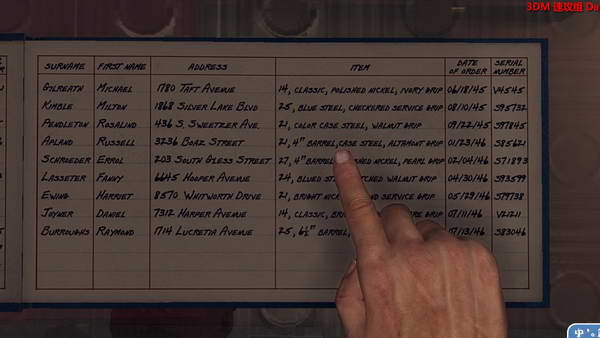 3DM 速攻组 Da
SURNAME FIRST NAME ADDRESS ITEM DATE OF ORDER SERIAL NUMBER
GILREATH MICHAEL 1780 TAFT AVENUE 14, CLASSIC, POLISHED NICKEL, IVORY GRIP 06/18/45 V4545
KIMBLE MILTON 1868 SILVER LAKE BLVD 25, BLUE STEEL, CHECKERED SERVICE GRIP 08/10/45 S95732
PENDLETON ROSALIND 436 S. SWEETZER AVE. 21, COLOR CASE STEEL, WALNUT GRIP 09/22/45 S97845
APLAND RUSSELL 3236 BOAZ STREET 21, 4" BARREL, CASE STEEL, ALTAMONT GRIP 01/23/46 S85621
SCHROEDER ERROL 203 SOUTH GLESS STREET 27, 4" BARREL, NICKEL, PEARL GRIP 02/04/46 S71893
LASSETER FANNY 6645 HOOPER AVENUE 24, BLUED WALNUT GRIP 04/30/46 S93599
EWING HARRIET 8570 WHITWORTH DRIVE 21, BRIGHT SERVICE GRIP 05/29/46 S79738
JOYNER DANIEL 7312 HARPER AVENUE 14, CLASSIC, GRIP 07/11/46 V21211
BURROUGHS RAYMOND 1714 LUCRETIA AVENUE 25, 6½" BARREL, 07/13/46 S83046
中